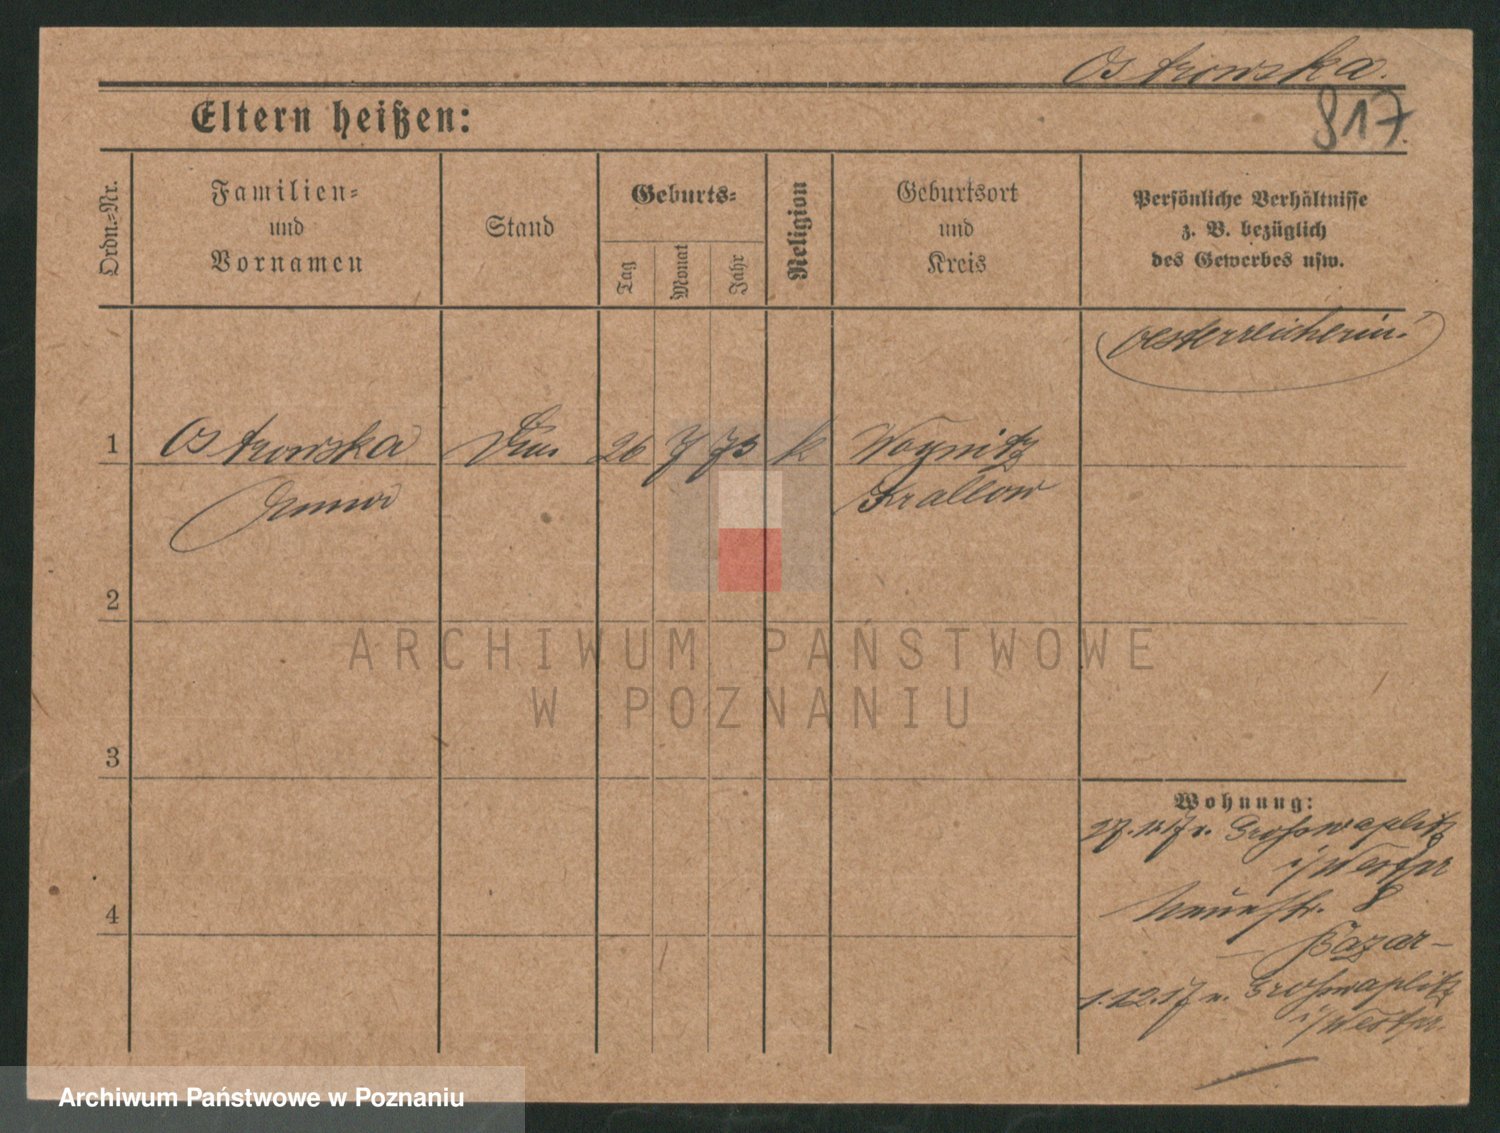 Ostrowska.
817.
Eltern heißen:
Ordn.-Nr.
Familien-
und
Vornamen
Stand
Geburts-
Tag
Monat
Jahr
Religion
Geburtsort
und
Kreis
Persönliche Verhältnisse
z. B. bezüglich
des Gewerbes usw.
Oesterreicherin!
1
Ostrowska
26
7
73
k
Woynitz
Krakow
2
ARCHIWUM PAŃSTWOWE
W POZNANIU
3
Wohnung:
27.11.17 v. Grosswaplitz
i/Westpr
Neuestr. 8
Bazar-
4
1.12.17 n. Grosswaplitz
i/Westpr.
Archiwum Państwowe w Poznaniu